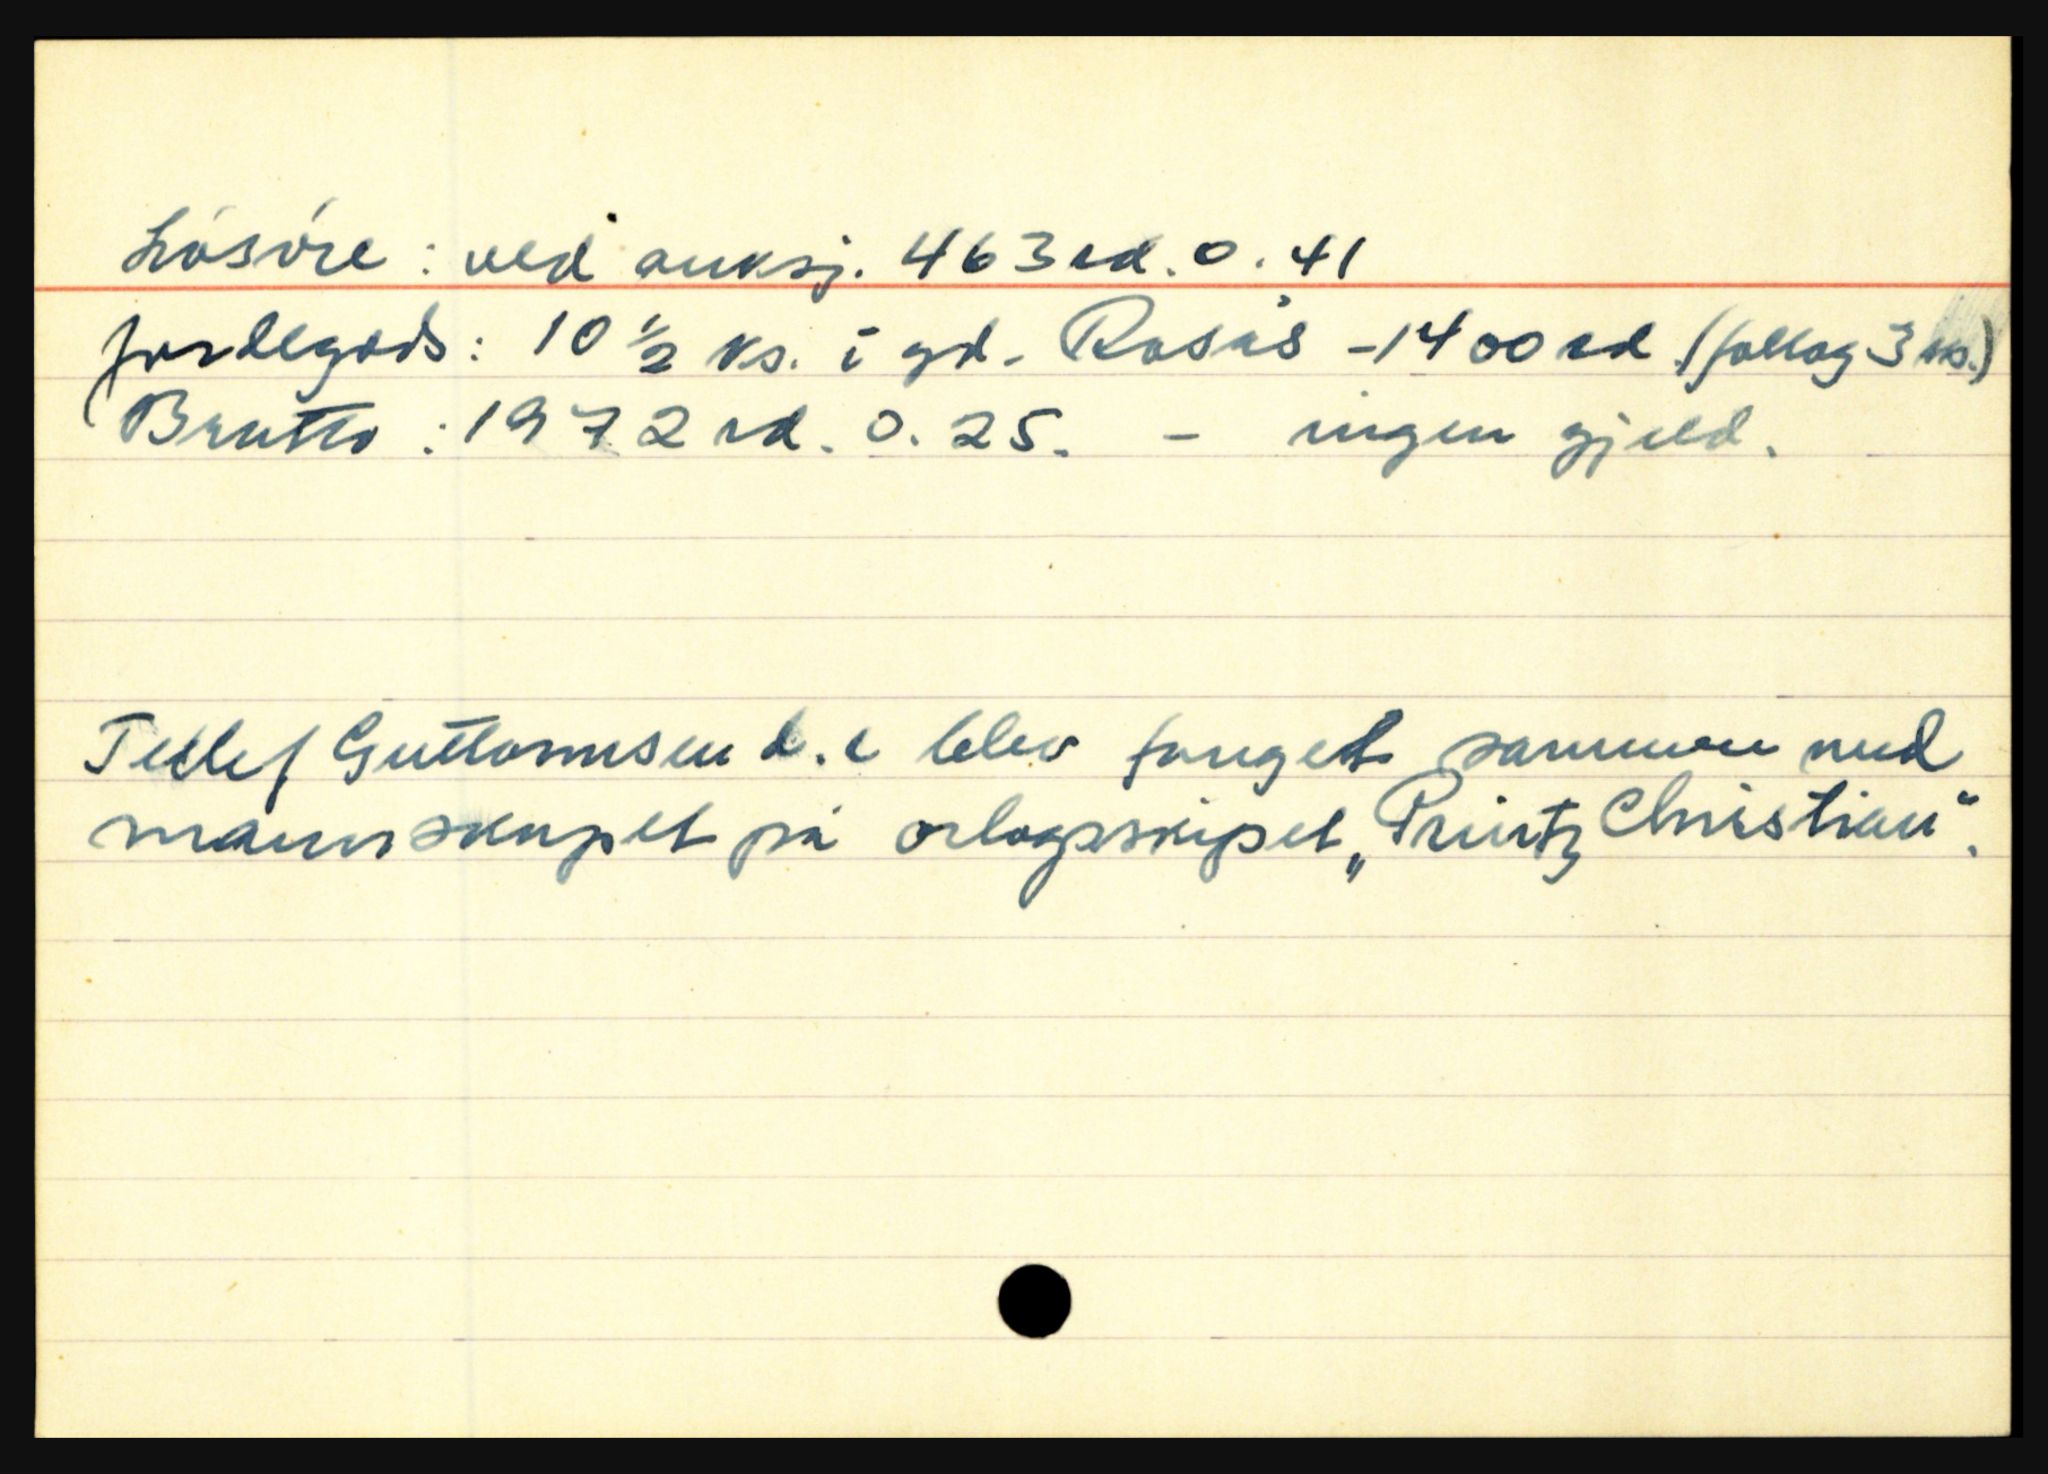 Lösöre : ved auksj. 463 rd. 0. 41
jordegods : 10 ½ ks. i gd. Rosås - 1400 rd (follog 3 ks.)
Brutto : 1972 rd. 0. 25. - ingen gjeld.
Tellef Guttormsen d.e blev fanget sammen med
mannskapet på orlogsskipet „Printz Christian“.